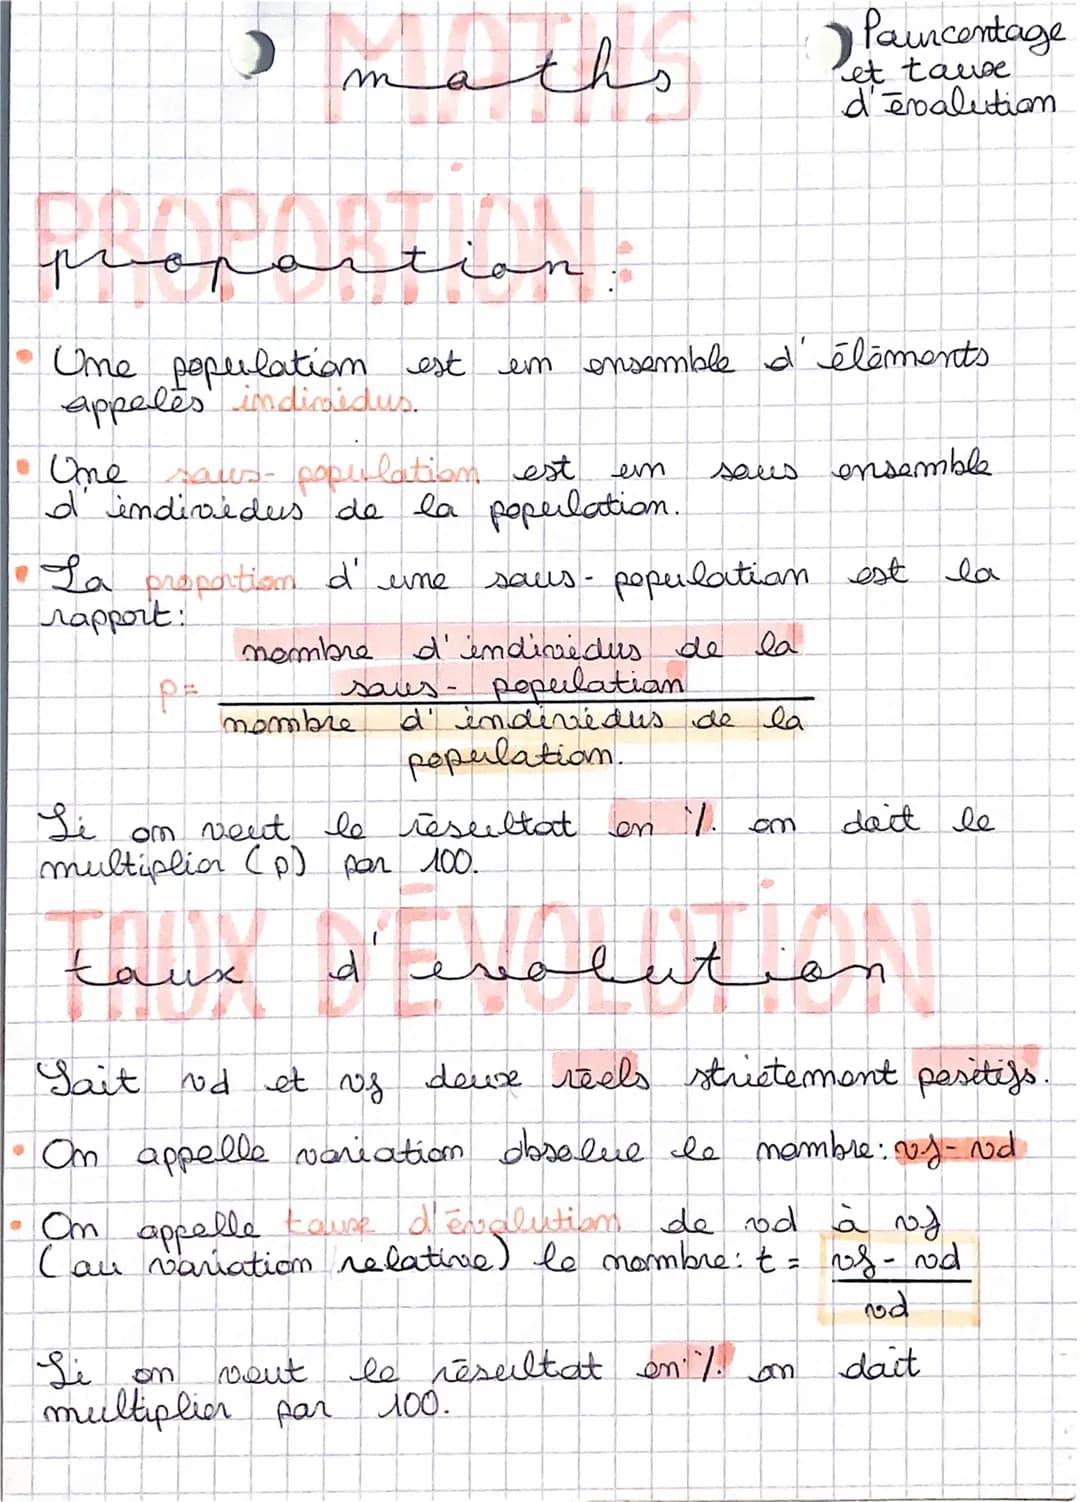 MATHS
maths
Pourcentage
et taux
d'évolution
PROPORTION:
proportion:
• Une population est un ensemble d'éléments
appelés individus.
• Une sous-population est un sous ensemble
d'individus de la population.
• La proportion d'une sous-population est la
rapport:
nombre d'individus de la
sous-population
p=
nombre d'individus de la
population.
Si on veut le résultat en % on doit le
multiplier (p) par 100.
TAUX D'ÉVOLUTION
taux d'evolution
Soit vd et vf deux réels strictement positifs.
• On appelle variation absolue le nombre: vf-vd
• On appelle taux d'évolution de vd à vf
(ou variation relative) le nombre: t = vf - vd
vd
Si on veut le résultat en % on doit
multiplier par 100.